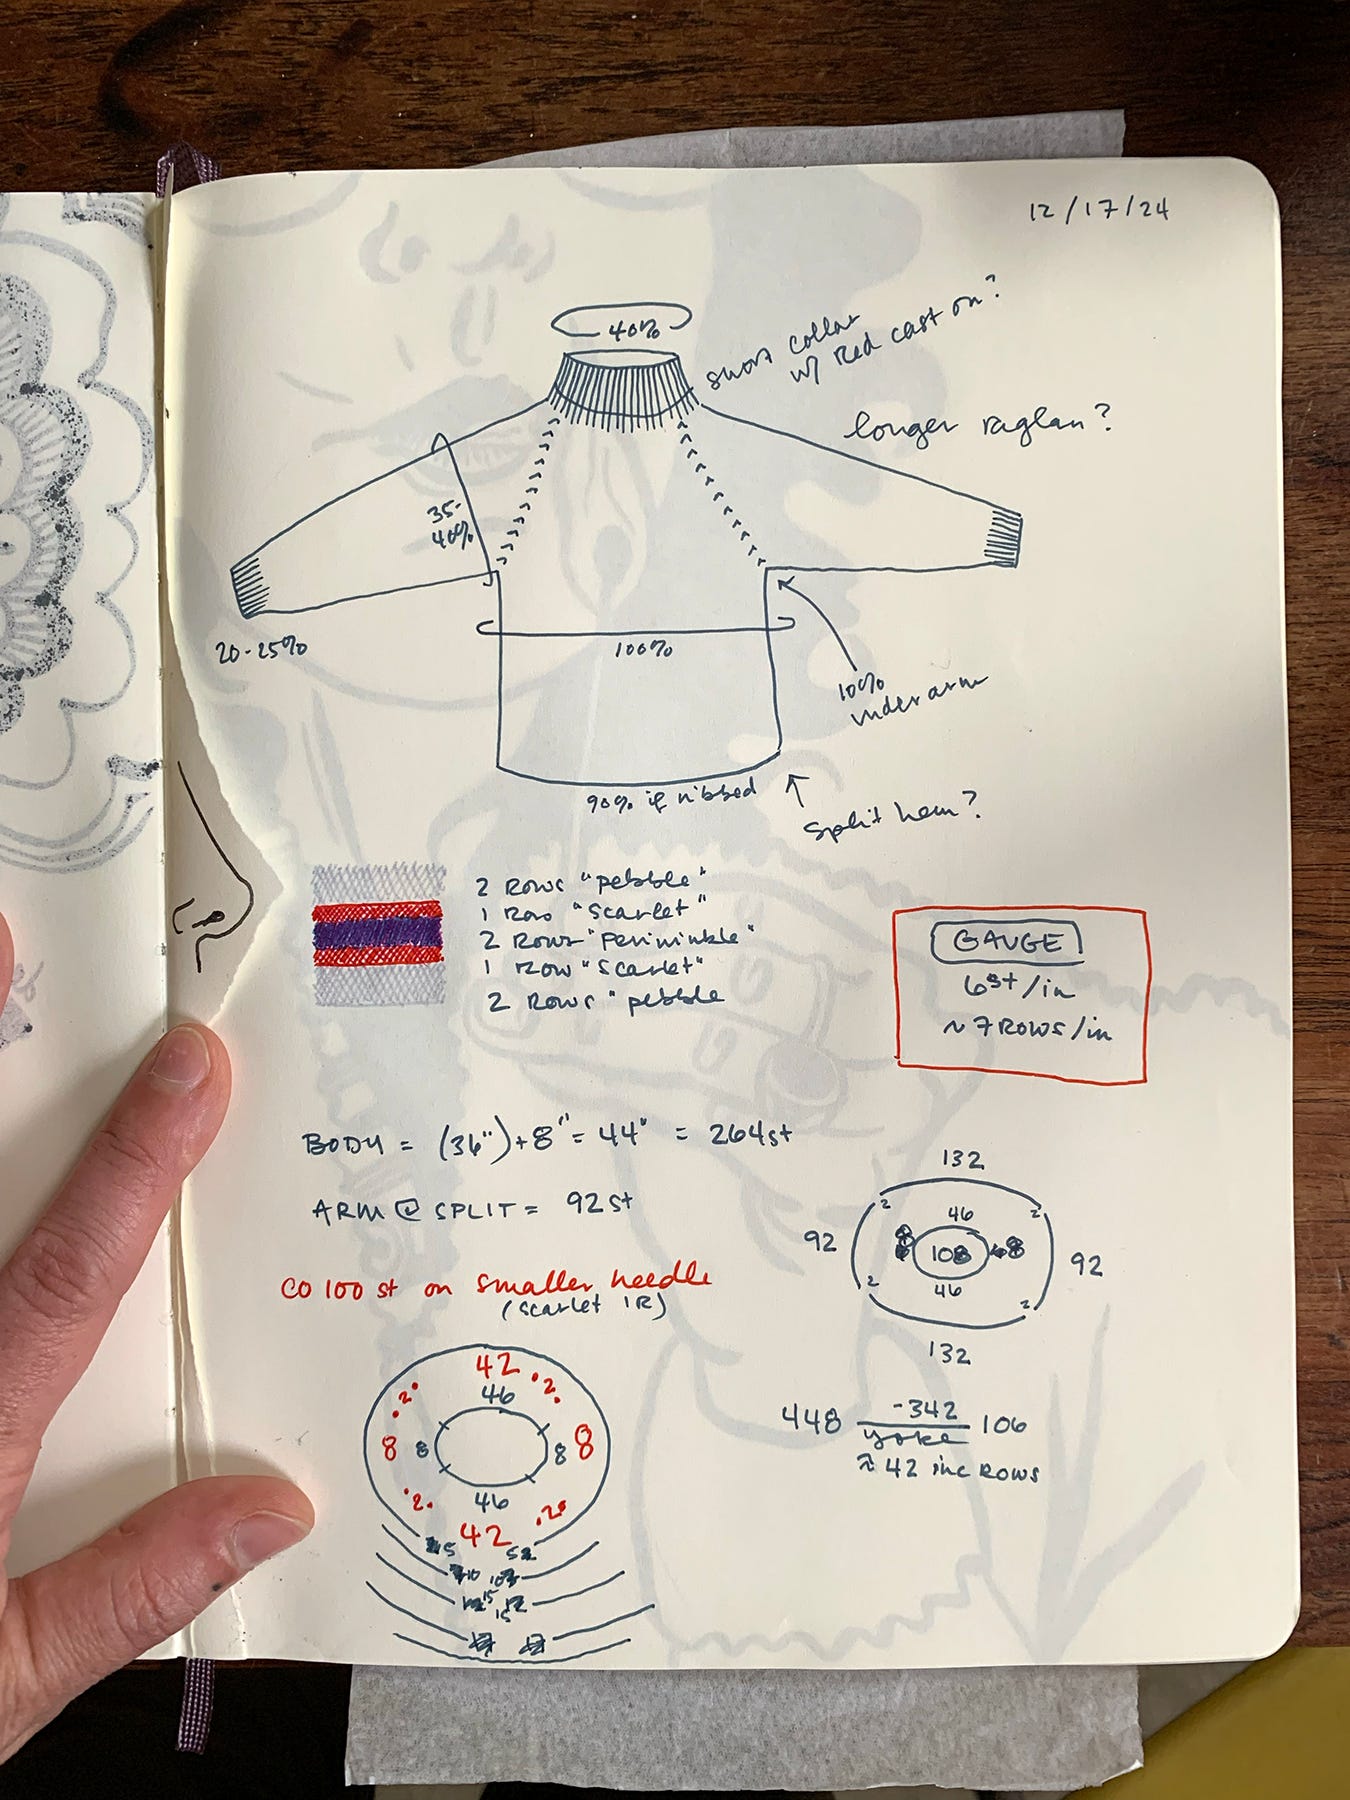 12/17/24
40%
short collar
w/ Red cast on?
longer raglan?
35-
40%
20-25%
100%
10%
underarm
90% if ribbed
split hem?
2 Rows "pebble"
1 Row "Scarlet"
2 Rows "periwinkle"
1 Row "Scarlet"
2 Rows "pebble
GAUGE
6st/in
~7 ROWS/in
BODY = (36")+8" = 44" = 264st
ARM @ SPLIT = 92st
132
2 2
46
92 8 108 8 92
46
2 2
132
CO 100 st on smaller needle
(scarlet 1R)
42
2 46 2
8 8 8 8
2 46 2
42
448 -342 106
yoke
≈ 42 inc ROWS
5 5
10 10
15
15